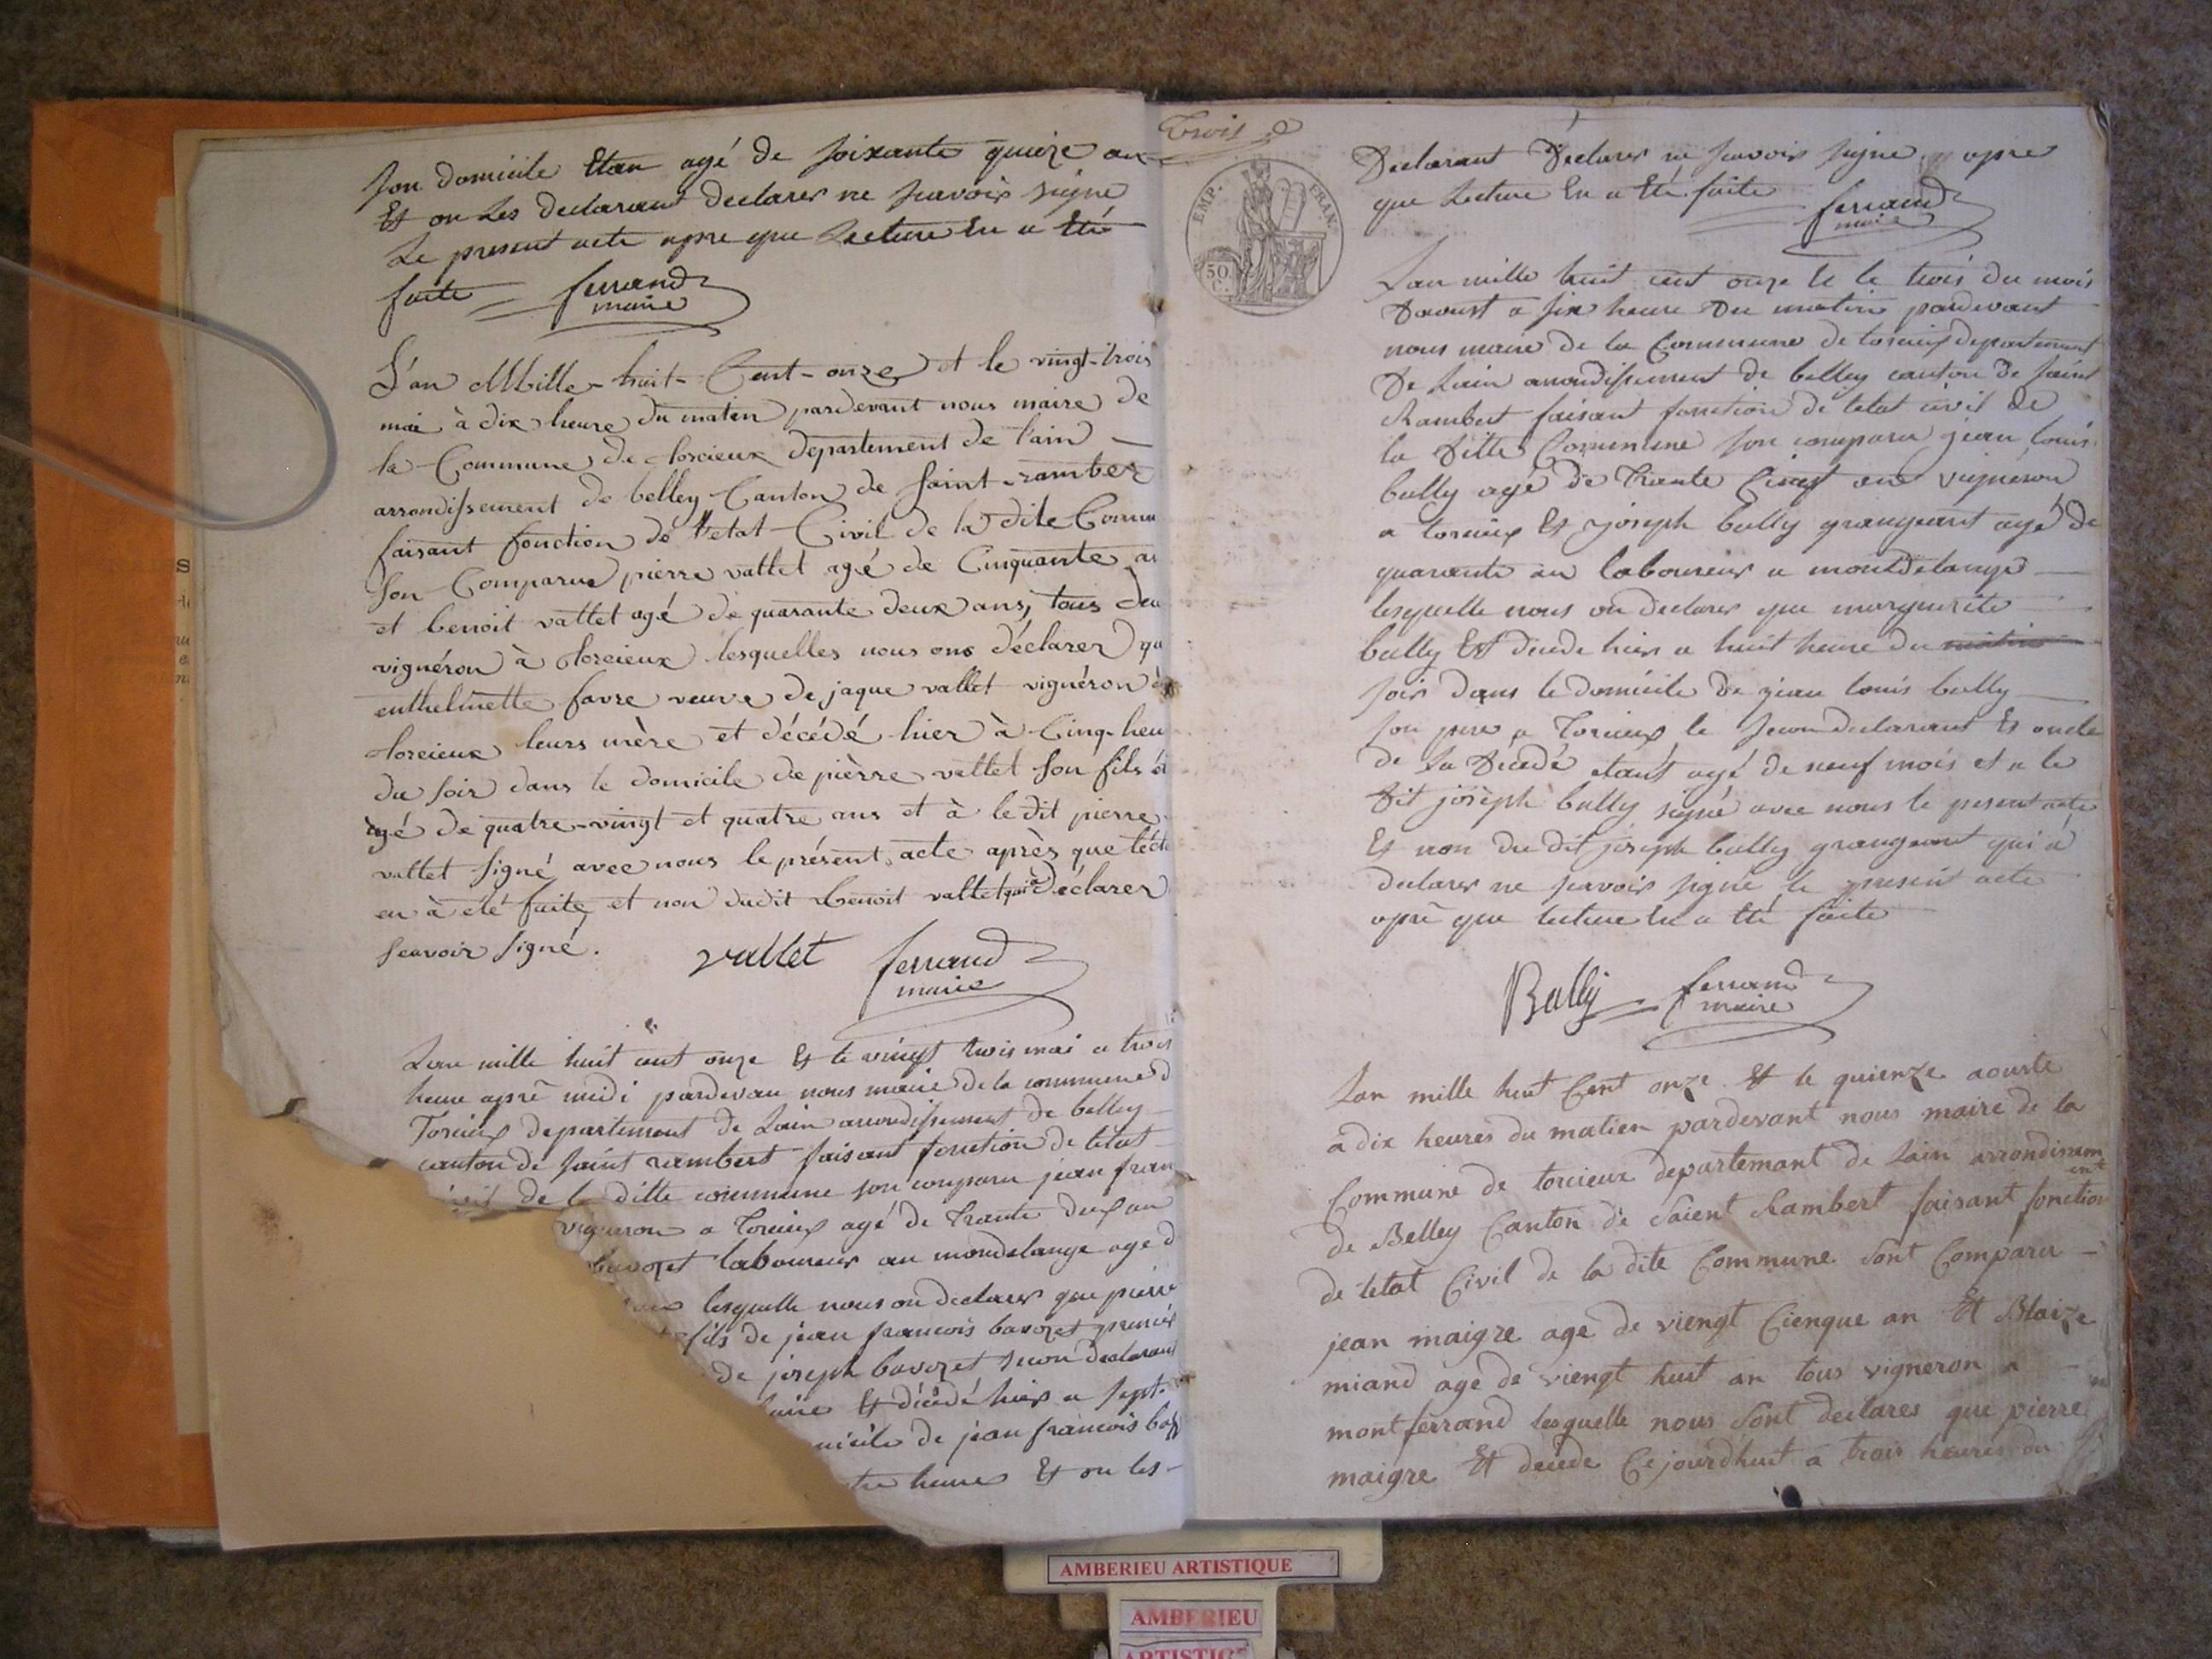 son domicile Etan agé de soixante quieze an
Et on Les declarant declarer ne scavoir signe
Le present acte apre que Lecture En a Eté
faite ferrand
maire
L'an Mille-huit-Cent-onze et le vingt-trois
mai à dix heure du maten pardevant nous maire de
la Commune de torcieux département de l'ain
arrondissement de belley Canton de saint-ramber
faisant fonction de l'etat-Civil de la dite Commu
son Comparue pierre vallet agé de Cinquante an
et benoit vallet agé de quarante deux ans, tous deu
vignéron à torcieux lesquelles nous ons déclarer qu
enthelmette favre veuve de jaque vallet vignéron à
torcieux leurs mère et décédé hier à Cinq-heu
du soir dans le domicile de pièrre vallet son fils ét
àgé de quatre-vingt et quatre ans et à le dit pierre
vallet signé avec nous le présent acte après que léctu
en à eté faite, et non dudit benoit vallet qui a déclarer
scavoir signé. vallet ferrand
maire
Lan mille huit cent onze Et le vingt trois mai a trois
heure aprè midi pardevan nous maire de la commune d
Torcieux departement de Lain arrondissement de belley
canton de saint rambert faisant fonction de letat
civil de la ditte commune son comparu jean fran
vigneron a Torcieux agé de Trante deux an
bavozet laboureur au mondelange age d
lesquelle nous on declarer que pierre
fils de jean francois bavozet premier
de joseph bavozet secon declarant
Et décédé hier a sept
micile de jean francois bav
tre heure Et on les
Trois
EMP. FRAN.
50 C.
Declarant Declarer ne scavoir signe apre
que Lecture En a Eté faite ferrand
maire
Lan mille huit cent onze Et le trois du mois
Daoust a six heure Du matin pardevant
nous maire de la Commune de torcieux departement
De Lain arrondissement de belley canton de saint
Rambert faisant fonction de letat civil de
la Ditte Commune son comparu jean louis
bully agé de Trante Cinq an vigneron
a torcieux Et joseph bully grangeant agé de
quarante an laboureur a montdelange
lesquelle nous on declarer que marguerite
bully Est decede hier a huit heure du matin
soir dans le domicile de jean louis bully
son pere a Torcieux le secon declarant Et oncle
de La Décédé etant agé de neuf mois et a le
Dit joséph bully signé avec nous le present acte
Et non du dit joseph bully grangeant qui a
declarer ne scavoir signé le present acte
aprè que lecture En a Eté faite
Bully ferrand
maire
Lan mille huit Cent onze Et le quienze aouste
a dix heures du matien pardevant nous maire de la
Commune de torcieux departemant de Lain arrondissem
ent
de Belley Canton de Saient Rambert faisant fonction
de letat Civil de la dite Commune Sont Comparu
jean maigre age de viengt Cienque an Et Blaize
miand age de viengt huit an tous vigneron a
montferrand lesquelle nous Sont declarer que pierre
maigre Et decede Ce jourdhuit a trois heures du
AMBERIEU ARTISTIQUE
AMBERIEU
ARTISTIQUE